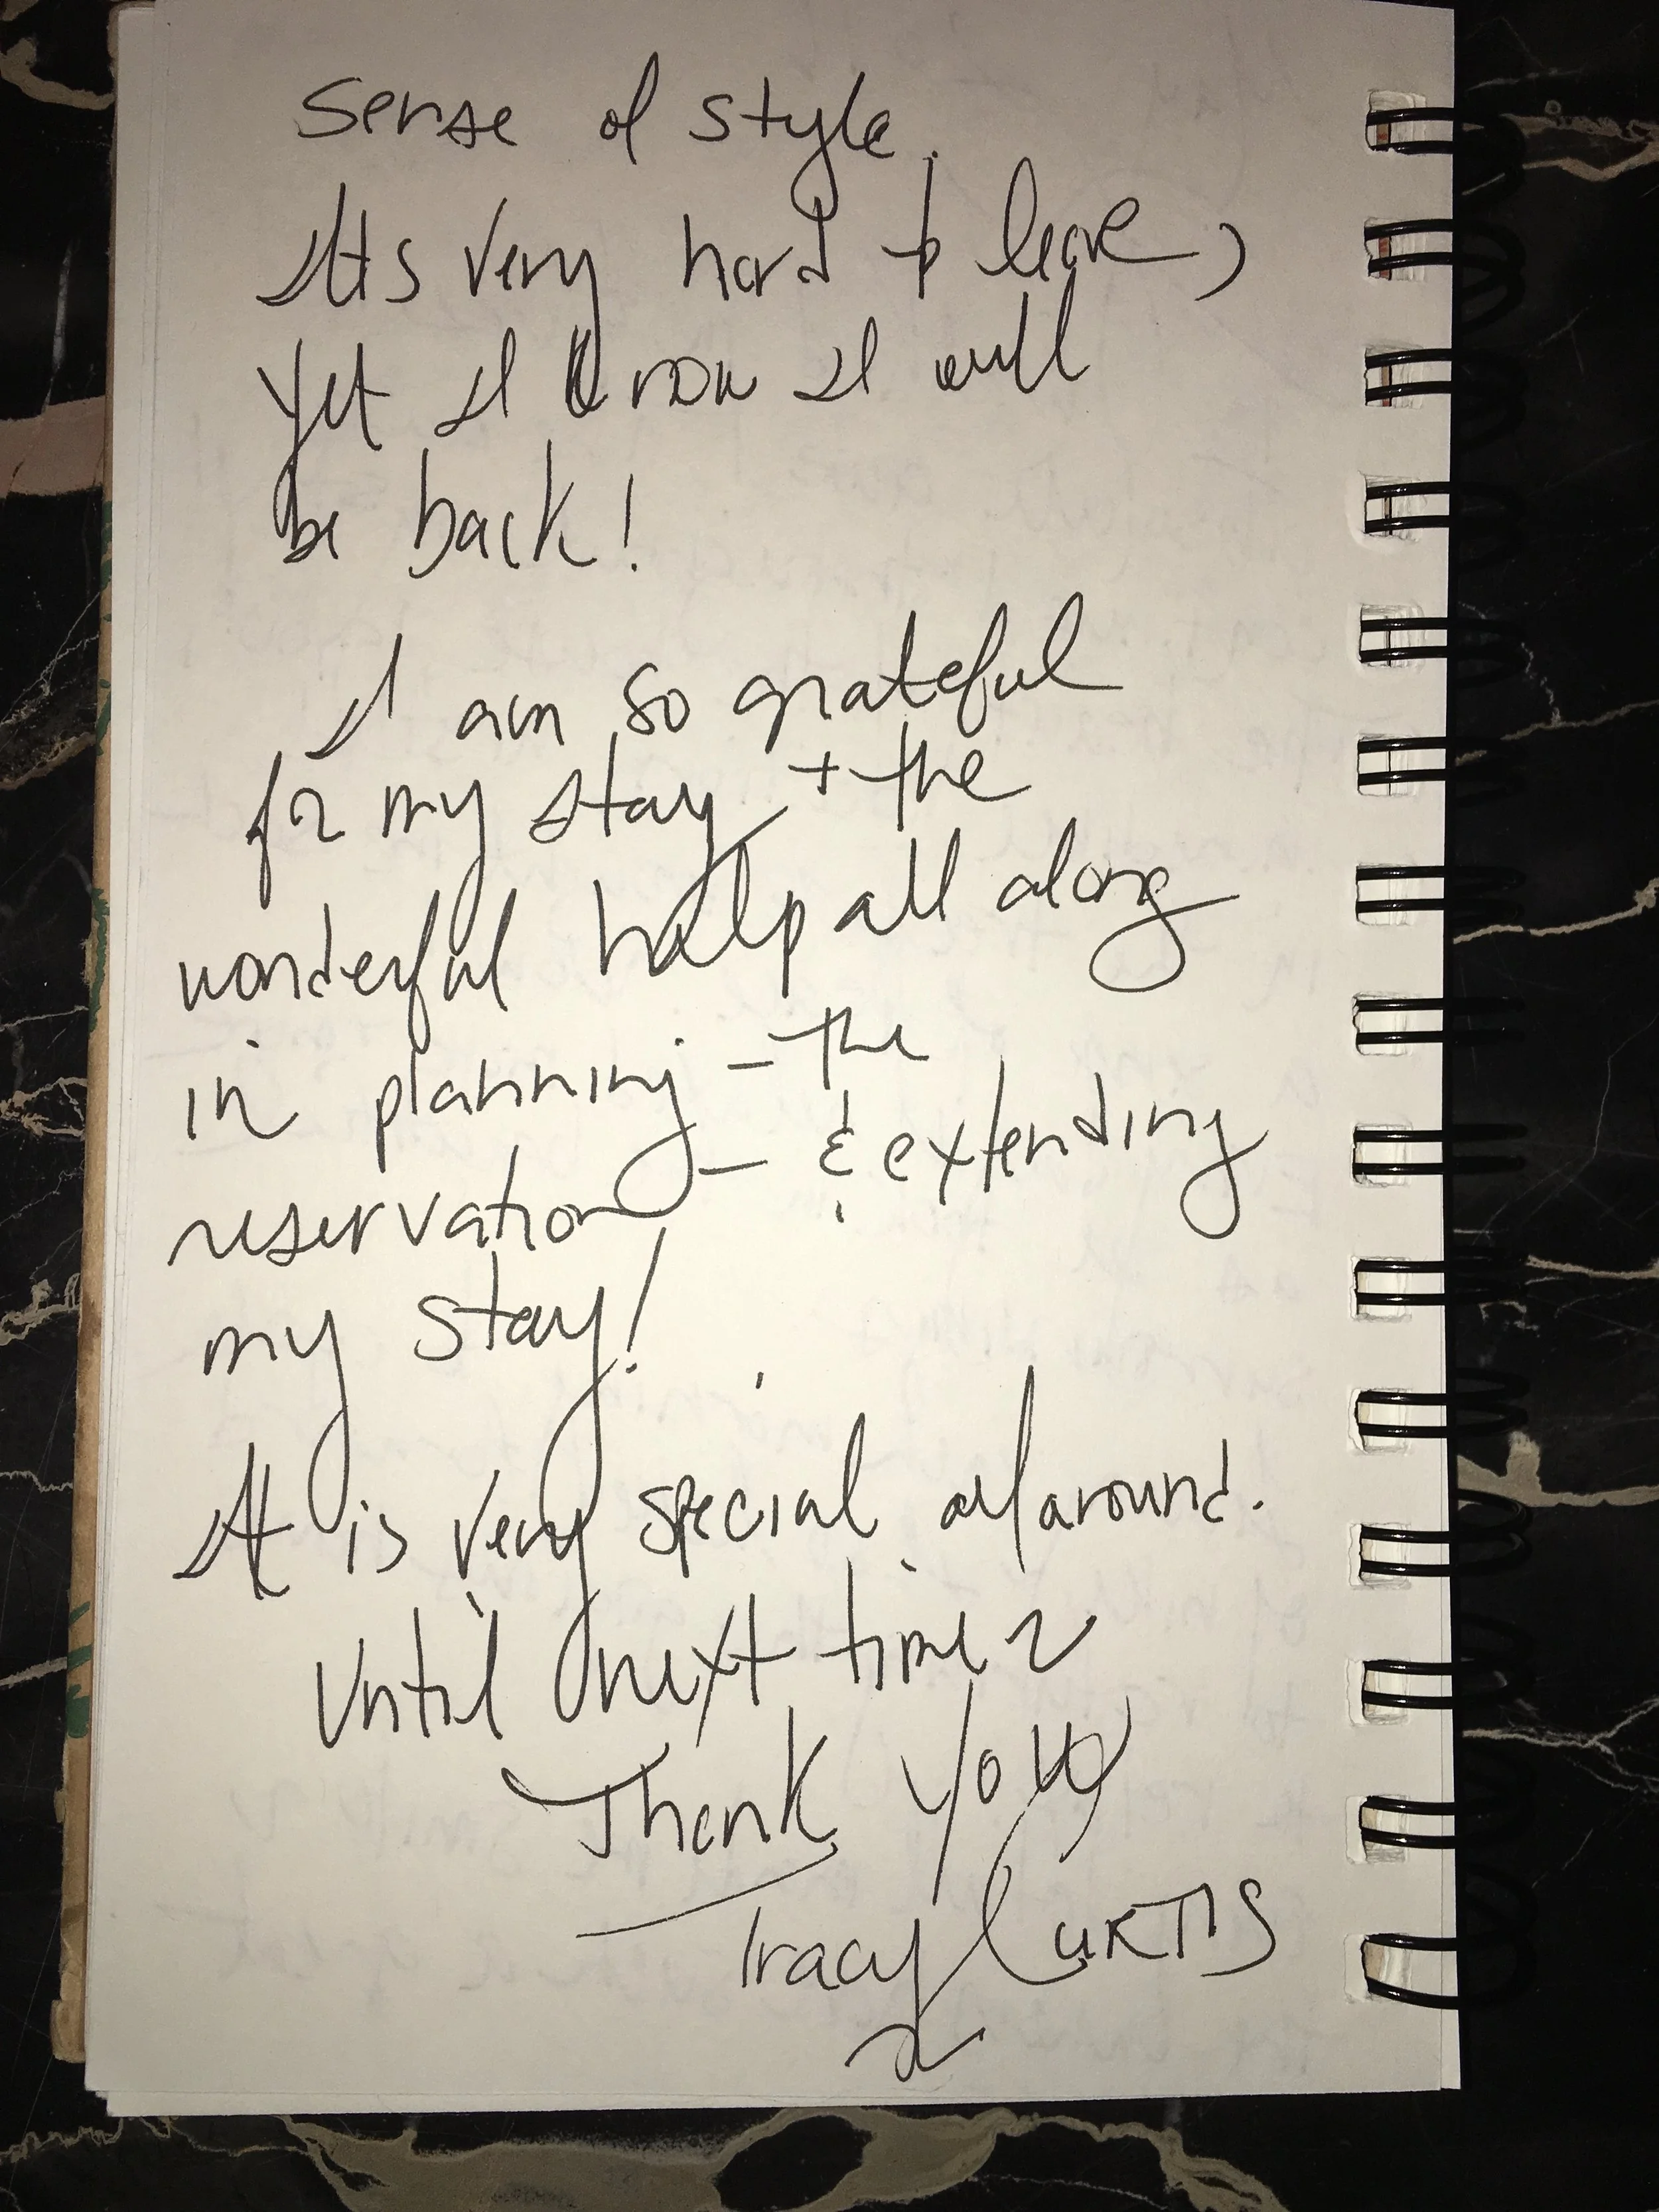 sense of style.
Its very hard to leave,
yet I know I will
be back!
I am so grateful
for my stay + the
wonderful help all along
in planning - the
reservation - & extending
my stay!
It is very special all around.
Until next time ~
Thank you
Tracy CURTIS